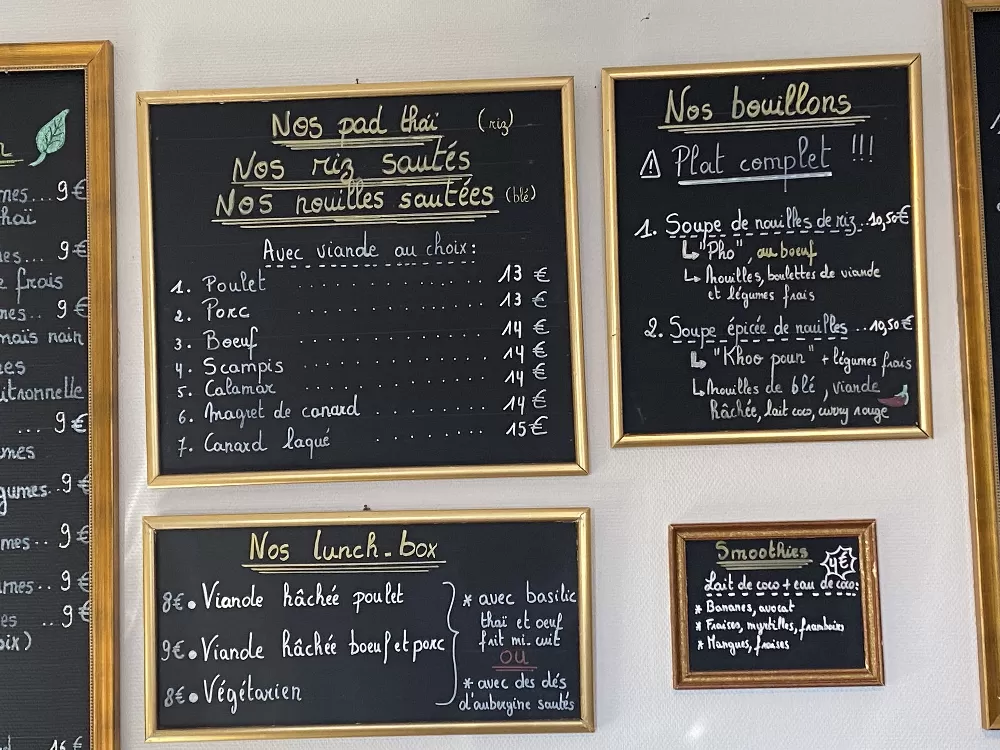 nes... 9€
hai
es... 9€
frais
nes.. 9€
maïs nain
es
itronnelle
... 9€
mes
gumes.. 9€
mes.. 9€
mes.. 9€
es .. 9€
oix)
Nos pad thaï (riz)
Nos riz sautés
Nos nouilles sautées (blé)
Avec viande au choix:
1. Poulet 13 €
2. Porc 13 €
3. Boeuf 14 €
4. Scampis 14 €
5. Calamar 14 €
6. Magret de canard 14 €
7. Canard laqué 15€
Nos bouillons
⚠ Plat complet !!!
1. Soupe de nouilles de riz..10,50€
"Pho", au boeuf
Nouilles, boulettes de viande
et légumes frais
2. Soupe épicée de nouilles ..10,50€
"Khoo poun" + légumes frais
Nouilles de blé, viande
hâchée, lait coco, curry rouge
Nos lunch-box
8€ • Viande hâchée poulet
9€ • Viande hâchée boeuf et porc
8€ • Végétarien
* avec basilic
thaï et oeuf
frit mi-cuit
OU
* avec des dés
d'aubergine sautés
Smoothies 4€
Lait de coco + eau de coco:
* Bananes, avocat
* Fraises, myrtilles, framboises
* Mangues, fraises